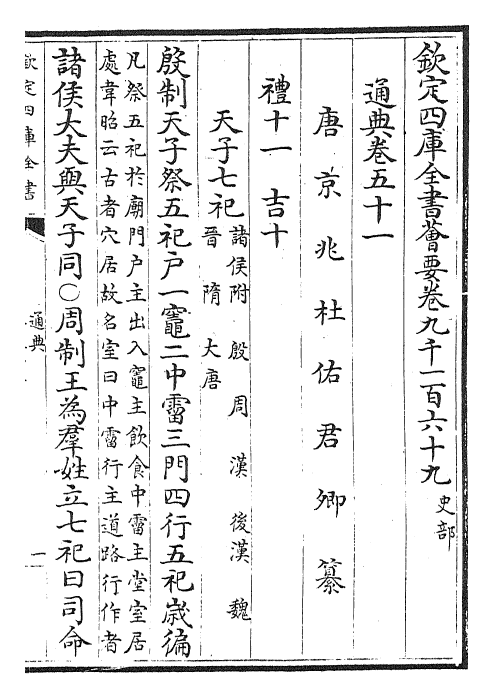 欽定四庫全書薈要卷九千一百六十九 史部
通典卷五十一
唐京兆杜佑君卿纂
禮十一 吉十
天子七祀 諸侯附 殷 周 漢 後漢 魏
晉 隋 大唐
殷制天子祭五祀戶一竈二中霤三門四行五祀歲徧
凡祭五祀於廟門戶主出入竈主飲食中霤主堂室居
處韋昭云古者穴居故名室曰中霤行主道路行作者
諸侯大夫與天子同○周制王為羣姓立七祀曰司命
欽定四庫全書
通典
一